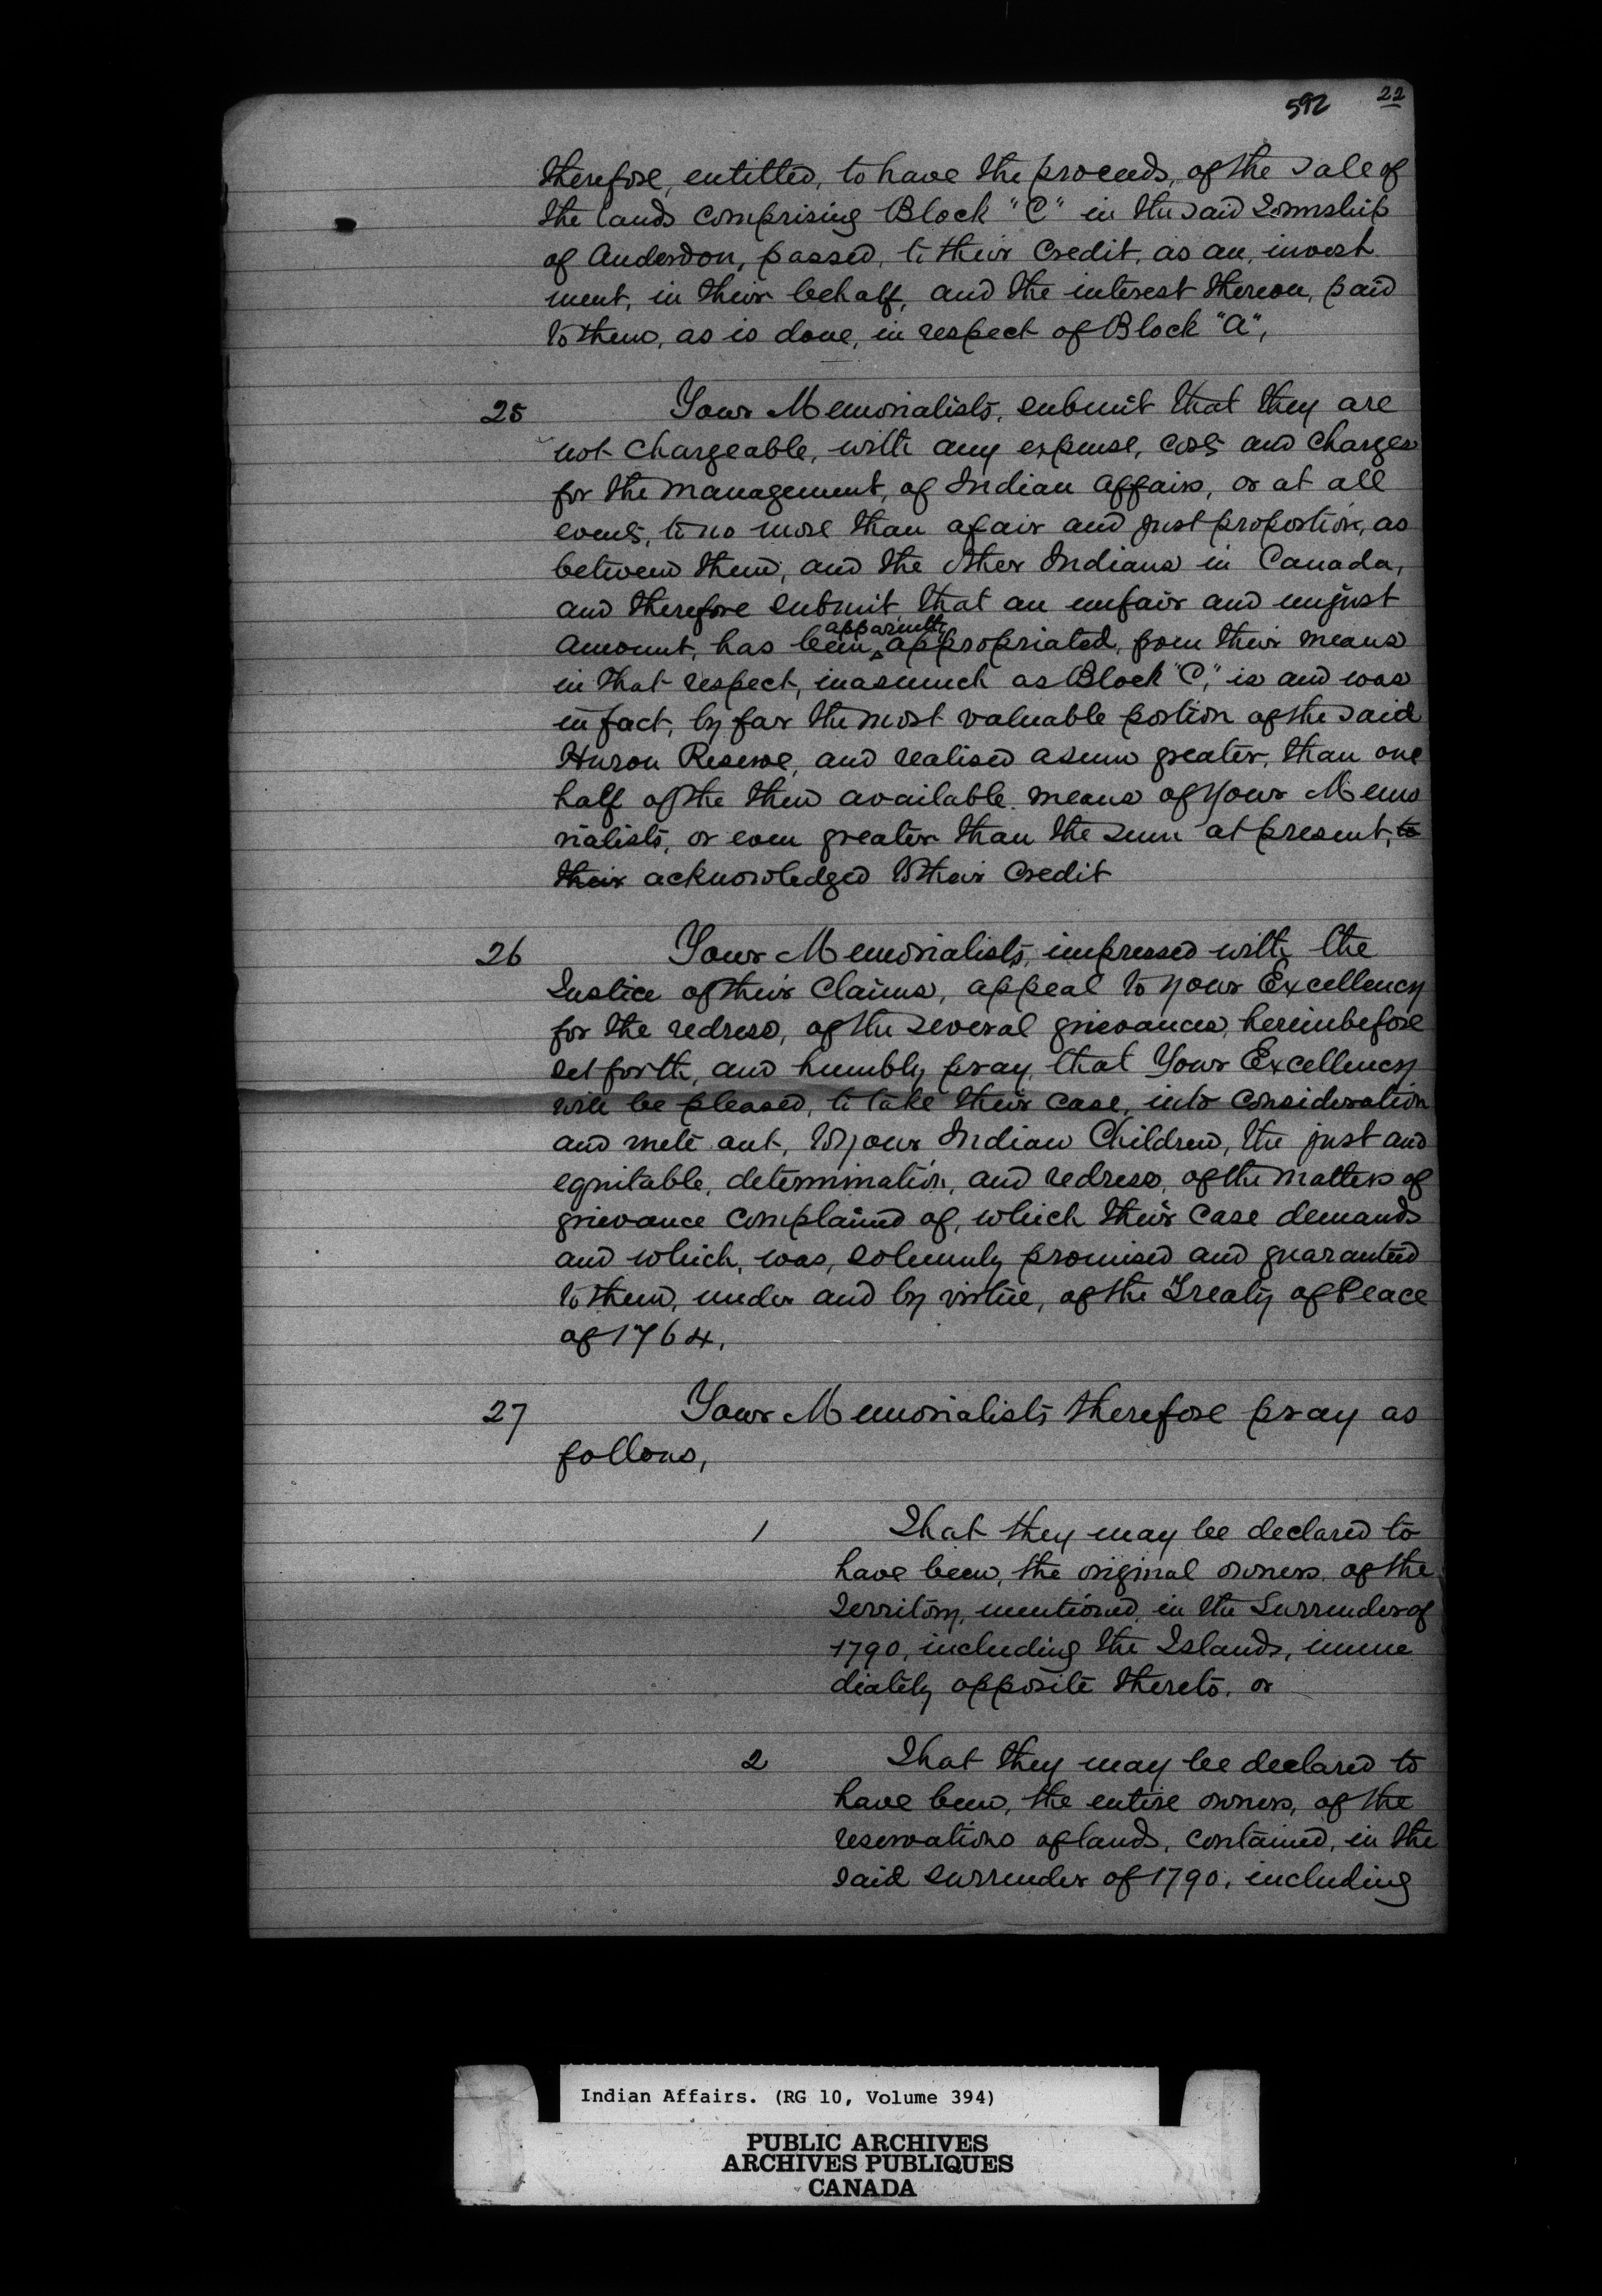 592 22
therefore, entitled, to have the proceeds, of the sale of
the lands comprising Block "C" in the said Township
of Anderdon, passed, to their credit, as an, invest
ment, in their behalf, and the interest thereon, paid
to them, as is done, in respect of Block "A",
25 Your Memorialists, submit that they are
not chargeable, with any expense, costs and charges
for the management, of Indian affairs, or at all
events, to no more than a fair and just proportion, as
between them, and the other Indians in Canada,
and therefore submit that an unfair and unjust
amount, has been apparently appropriated, from their means
in that respect, inasmuch as Block "C," is and was
in fact, by far the most valuable portion of the said
Huron Reserve, and realised a sum greater, than one
half of the then available means of your Memo
rialists, or even greater than the sum at present, to
their acknowledged to their credit
26 Your Memorialists, impressed with the
Justice of their Claims, appeal to your Excellency
for the redress, of the several grievances, hereinbefore
set forth, and humbly pray, that Your Excellency
will be pleased, to take their case, into consideration
and mete out, to your Indian Children, the just and
equitable, determination, and redress, of the matters of
grievance complained of, which their case demands
and which, was, solemnly promised and guaranteed
to them, under and by virtue, of the Treaty of Peace
of 1764,
27 Your Memorialists therefore pray as
follows,
1 That they may be declared to
have been, the original owners, of the
Territory, mentioned, in the Surrender of
1790, including the Islands, imme
diately opposite thereto, or
2 That they may be declared to
have been, the entire owners, of the
reservations of lands, contained, in the
said surrender of 1790, including
Indian Affairs. (RG 10, Volume 394)
PUBLIC ARCHIVES
ARCHIVES PUBLIQUES
CANADA